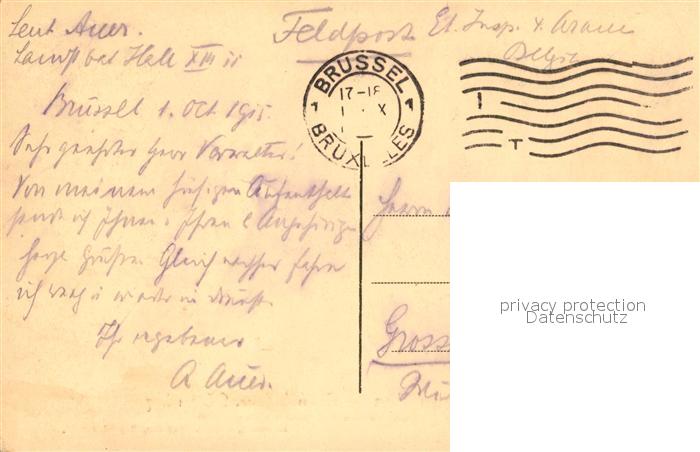 Leut Auer.
Landst bat Hall XIII
Feldpost Et. Insp. 4. Armee
Belgien
BRÜSSEL
17-18
1 X
BRUXELLES
1 1
T
Brüssel 1. Oct 1915.
Sehr geehrter Herr Verwalter!
Von meinem hiesigen Aufenthalte
sende ich Ihnen u. Ihren l Angehörigen
herzl Grüße. Gleich nachher fahre
ich
Ihr ergebener
A Auer.
Herrn
Gross
privacy protection
Datenschutz